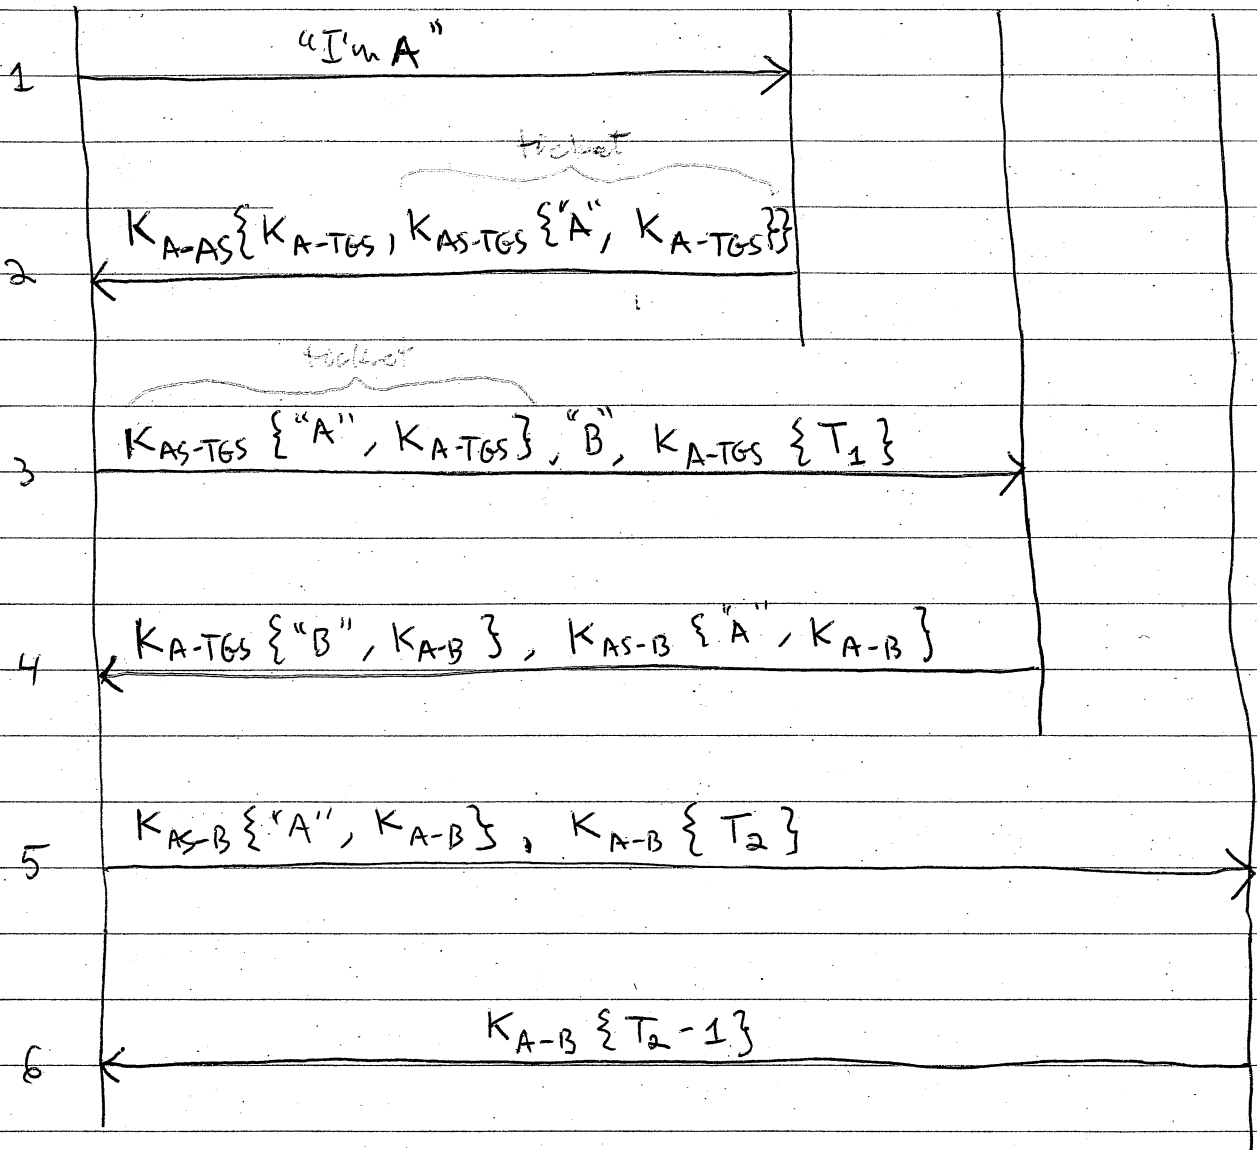 1 "I'm A"
ticket
K A-AS {K A-TGS, K AS-TGS {"A", K A-TGS}}
2
ticket
K AS-TGS {"A", K A-TGS}, "B", K A-TGS {T1}
3
K A-TGS {"B", K A-B}, K AS-B {"A", K A-B}
4
K AS-B {"A", K A-B}, K A-B {T2}
5
K A-B {T2-1}
6